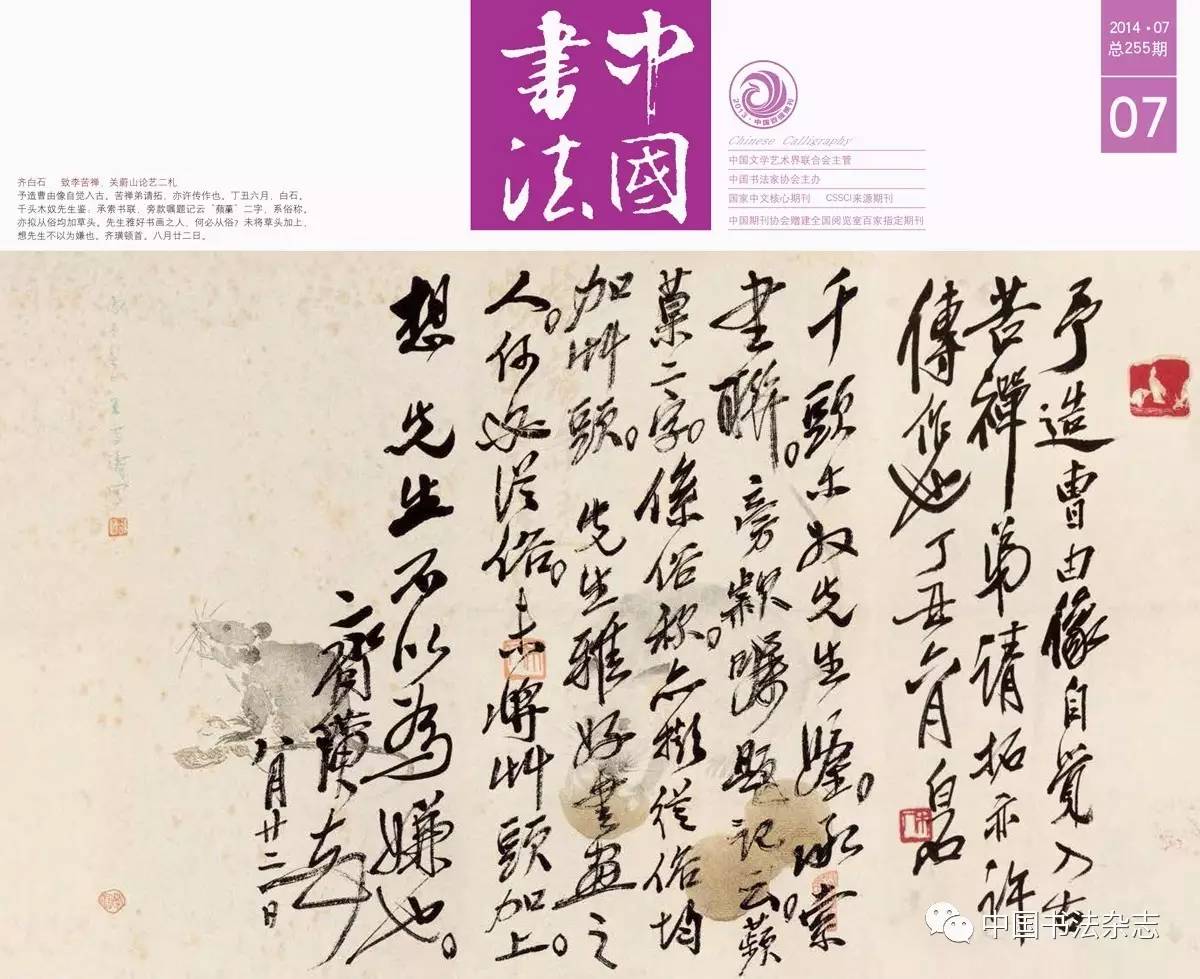 中國
書法
2013·中国百强报刊
Chinese Calligraphy
中国文学艺术界联合会主管
中国书法家协会主办
国家中文核心期刊 CSSCI来源期刊
中国期刊协会赠建全国阅览室百家指定期刊
2014·07
总255期
07
齐白石 致李苦禅、关蔚山论艺二札
予造曹由像自觉入古。苦禅弟请拓，亦许传作也。丁丑六月，白石。
千头木奴先生鉴：承索书联，旁款嘱题记云“蘋菓”二字，系俗称。
亦拟从俗均加草头。先生雅好书画之人，何必从俗？未将草头加上，
想先生不以为嫌也。齐璜顿首。八月廿二日。
予造曹由像自覺入古
苦禪弟請拓亦許
傳作也丁丑六月白石
千頭木奴先生鑒。承索
書聯。旁款囑題記云。蘋
菓二字。係俗称。亦擬從俗均
加艸頭。先生雅好書畫之
人。何必從俗。未將艸頭加上。
想先生不以為嫌也。
齊璜頓首
八月廿二日
中国书法杂志